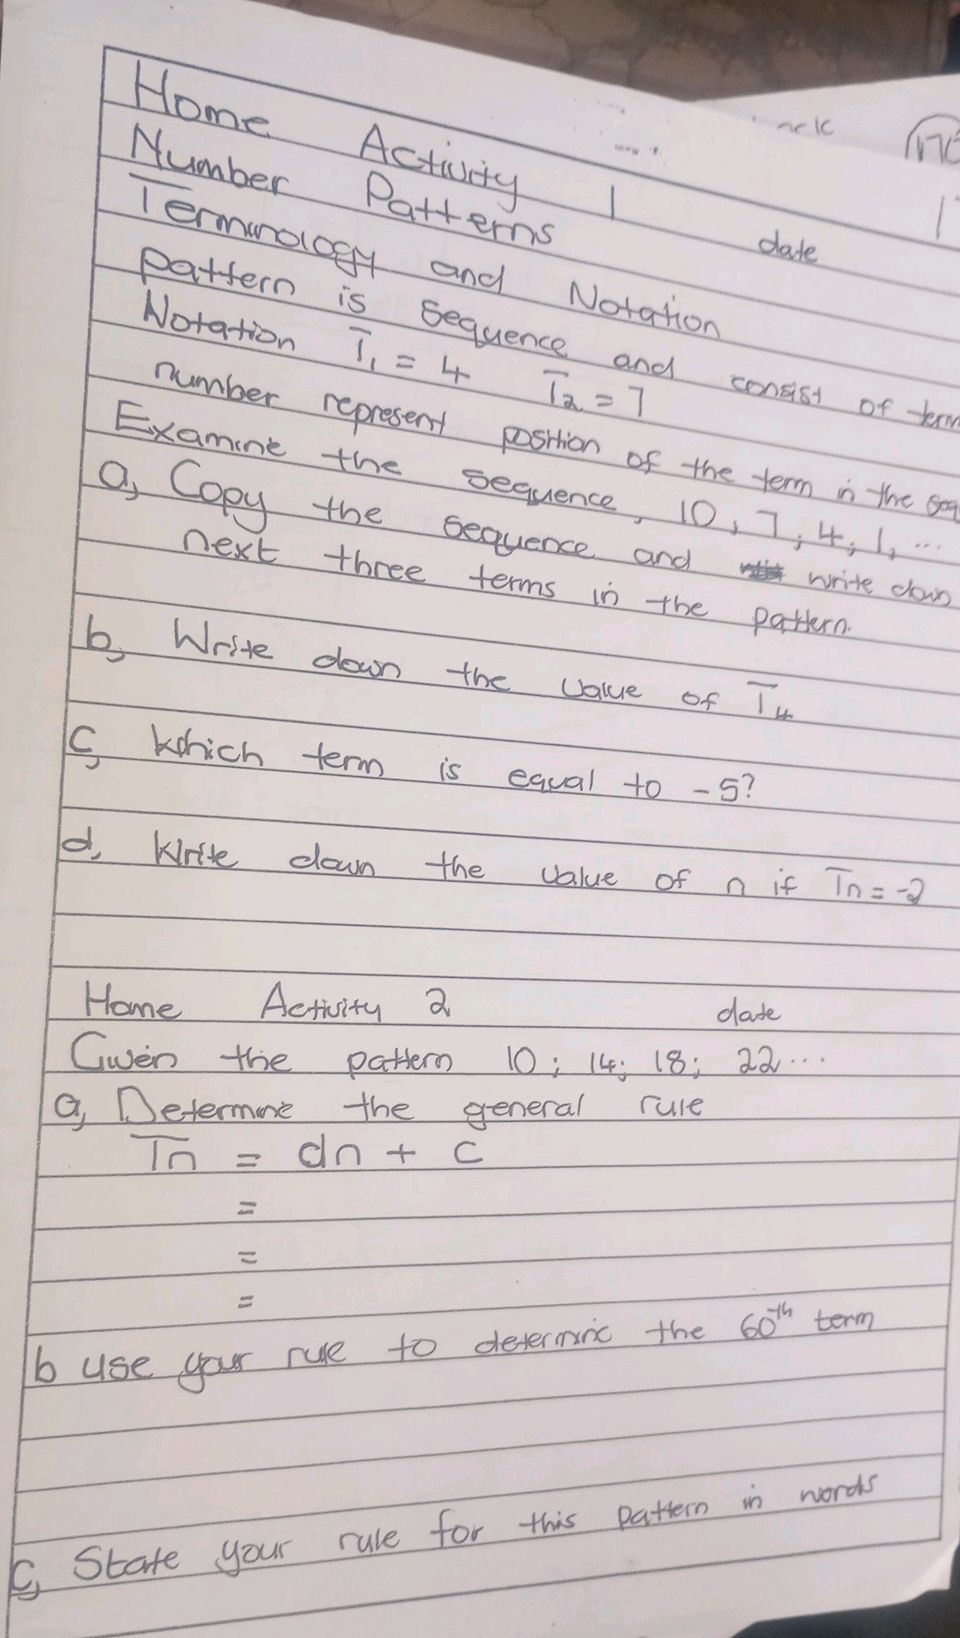 nck
Home Activity 1
Number Patterns date
Terminology and Notation
pattern is sequence and consist of term
Notation T1 = 4 T2 = 7
number represent position of the term in the seq
Examine the sequence, 10, 7, 4, 1, ...
a, Copy the sequence and write down
next three terms in the pattern.
b, Write down the value of T4
c, Which term is equal to -5?
d, Write down the value of n if Tn = -2
Home Activity 2 date
Given the pattern 10; 14; 18; 22...
a, Determine the general rule
Tn = dn + c
=
=
=
b use your rule to determine the 60th term
c, State your rule for this pattern in words